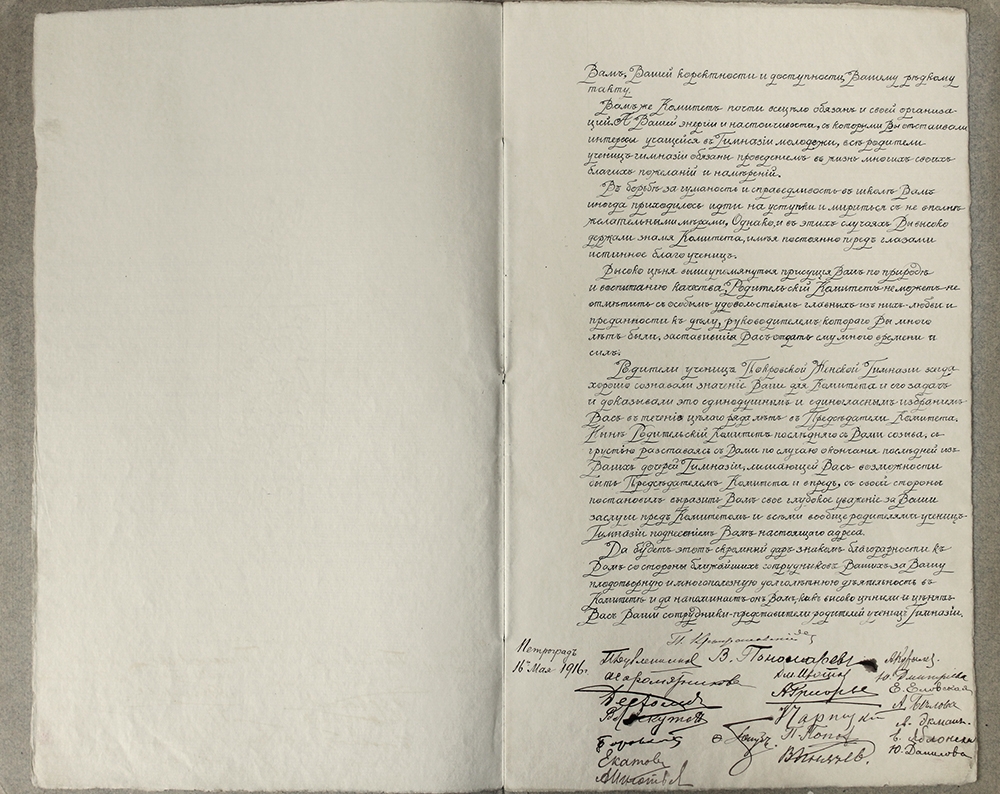 Вамъ, Вашей коректности и доступности, Вашему рѣдкому
такту.
Вамъ же Комитетъ почти всецѣло обязанъ и своей организа-
цией. А Вашей энергіи и настойчивости, съ которыми Вы отстаивали
интересы учащейся въ Гимназіи молодежи, всѣ родители
ученицъ гимназіи обязаны проведеніемъ въ жизнь многихъ своихъ
благихъ пожеланій и намѣреній.
Въ борьбѣ за гуманость и справедливость въ школѣ Вамъ
иногда приходилось идти на уступки и мириться съ не вполнѣ
желательными мѣрами. Однако, и въ этихъ случаяхъ Вы высоко
держали знамя Комитета, имѣя постоянно передъ глазами
истинное благо ученицъ.
Высоко цѣня вышеупомянутыя присущія Вамъ по природѣ
и воспитанію качества, Родительскій Комитетъ не можетъ не
отмѣтить съ особымъ удовольствіемъ главныхъ изъ нихъ - любви и
преданности къ дѣлу, руководителемъ котораго Вы много
лѣтъ были, заставившія Васъ отдать ему много времени и
силъ.
Родители ученицъ Покровской Женской Гимназіи всегда
хорошо сознавали значеніе Ваше для Комитета и его задачъ
и доказывали это единодушнымъ и единогласнымъ избраніемъ
Васъ въ теченіе цѣлаго ряда лѣтъ въ Предсѣдатели Комитета.
Нынѣ Родительскій Комитетъ послѣдняго съ Вами созыва, съ
грустью разставаясь съ Вами по случаю окончанія послѣдней изъ
Вашихъ дочерей Гимназіи, лишающей Васъ возможности
быть Предсѣдателемъ Комитета и впредь, съ своей стороны
постановилъ выразить Вамъ свое глубокое уваженіе за Ваши
заслуги предъ Комитетомъ и всѣми вообще родителями ученицъ-
Гимназіи поднесеніемъ Вамъ настоящаго адреса.
Да будетъ этотъ скромный даръ знакомъ благодарности къ
Вамъ со стороны ближайшихъ сотрудниковъ Вашихъ за Вашу
плодотворную и многополезную долголѣтнюю дѣятельность въ
Комитетѣ и да напоминаетъ онъ Вамъ, какъ высоко цѣнили и цѣнятъ
Васъ Ваши сотрудники-представители родителей ученицъ Гимназіи.
Петроградъ
16го Мая 1916г.
В. Пономаревъ
Ю. Дмитріева
Е. Еловская
А. Бѣлова
А. Экманъ
Ю. Данилова
П. Попо